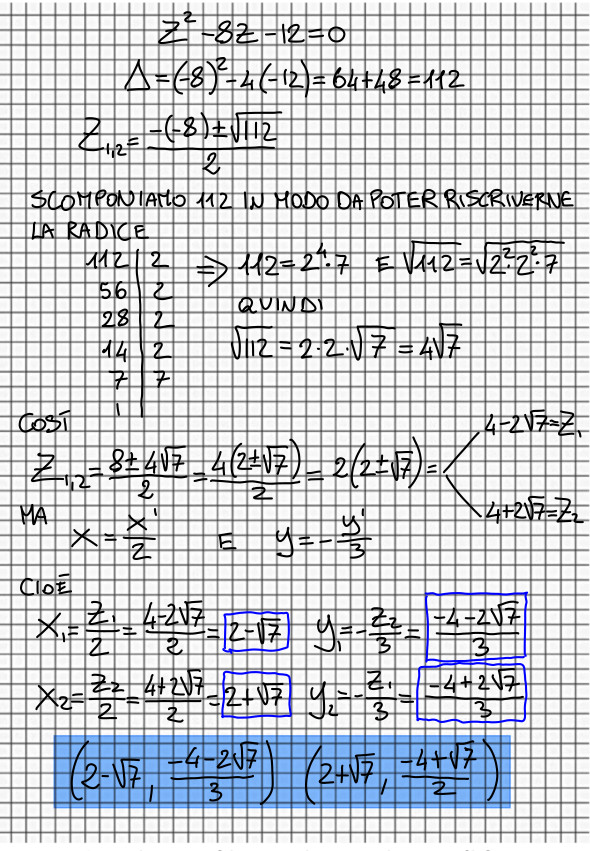 Z² -8Z -12=0
Δ=(-8)²-4(-12)=64+48=112
Z₁,₂= (-(-8)±√112)/2
SCOMPONIAMO 112 IN MODO DA POTER RISCRIVERNE
LA RADICE
112 | 2 ⇒ 112=2⁴·7 E √112=√2²·2²·7
56 | 2
28 | 2 QUINDI
14 | 2 √112 = 2·2·√7 = 4√7
7 | 7
1 |
COSÌ
Z₁,₂= (8±4√7)/2 = 4(2±√7)/2 = 2(2±√7)= 4-2√7=Z₁
4+2√7=Z₂
MA X = X'/2 E y=-y'/3
CIOÈ
X₁= Z₁/2 = (4-2√7)/2 = 2-√7 y₁=-Z₂/3 = (-4-2√7)/3
X₂= Z₂/2 = (4+2√7)/2 = 2+√7 y₂=-Z₁/3 = (-4+2√7)/3
(2-√7, (-4-2√7)/3) (2+√7, (-4+√7)/2)